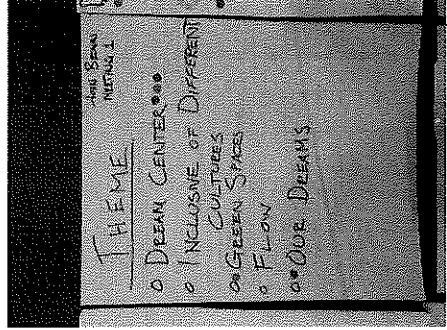 THEME
DREAM CENTER
INCLUSIVE OF DIFFERENT
CULTURES
GREEN SPACES
FLOW
OUR DREAMS
MEETING 1